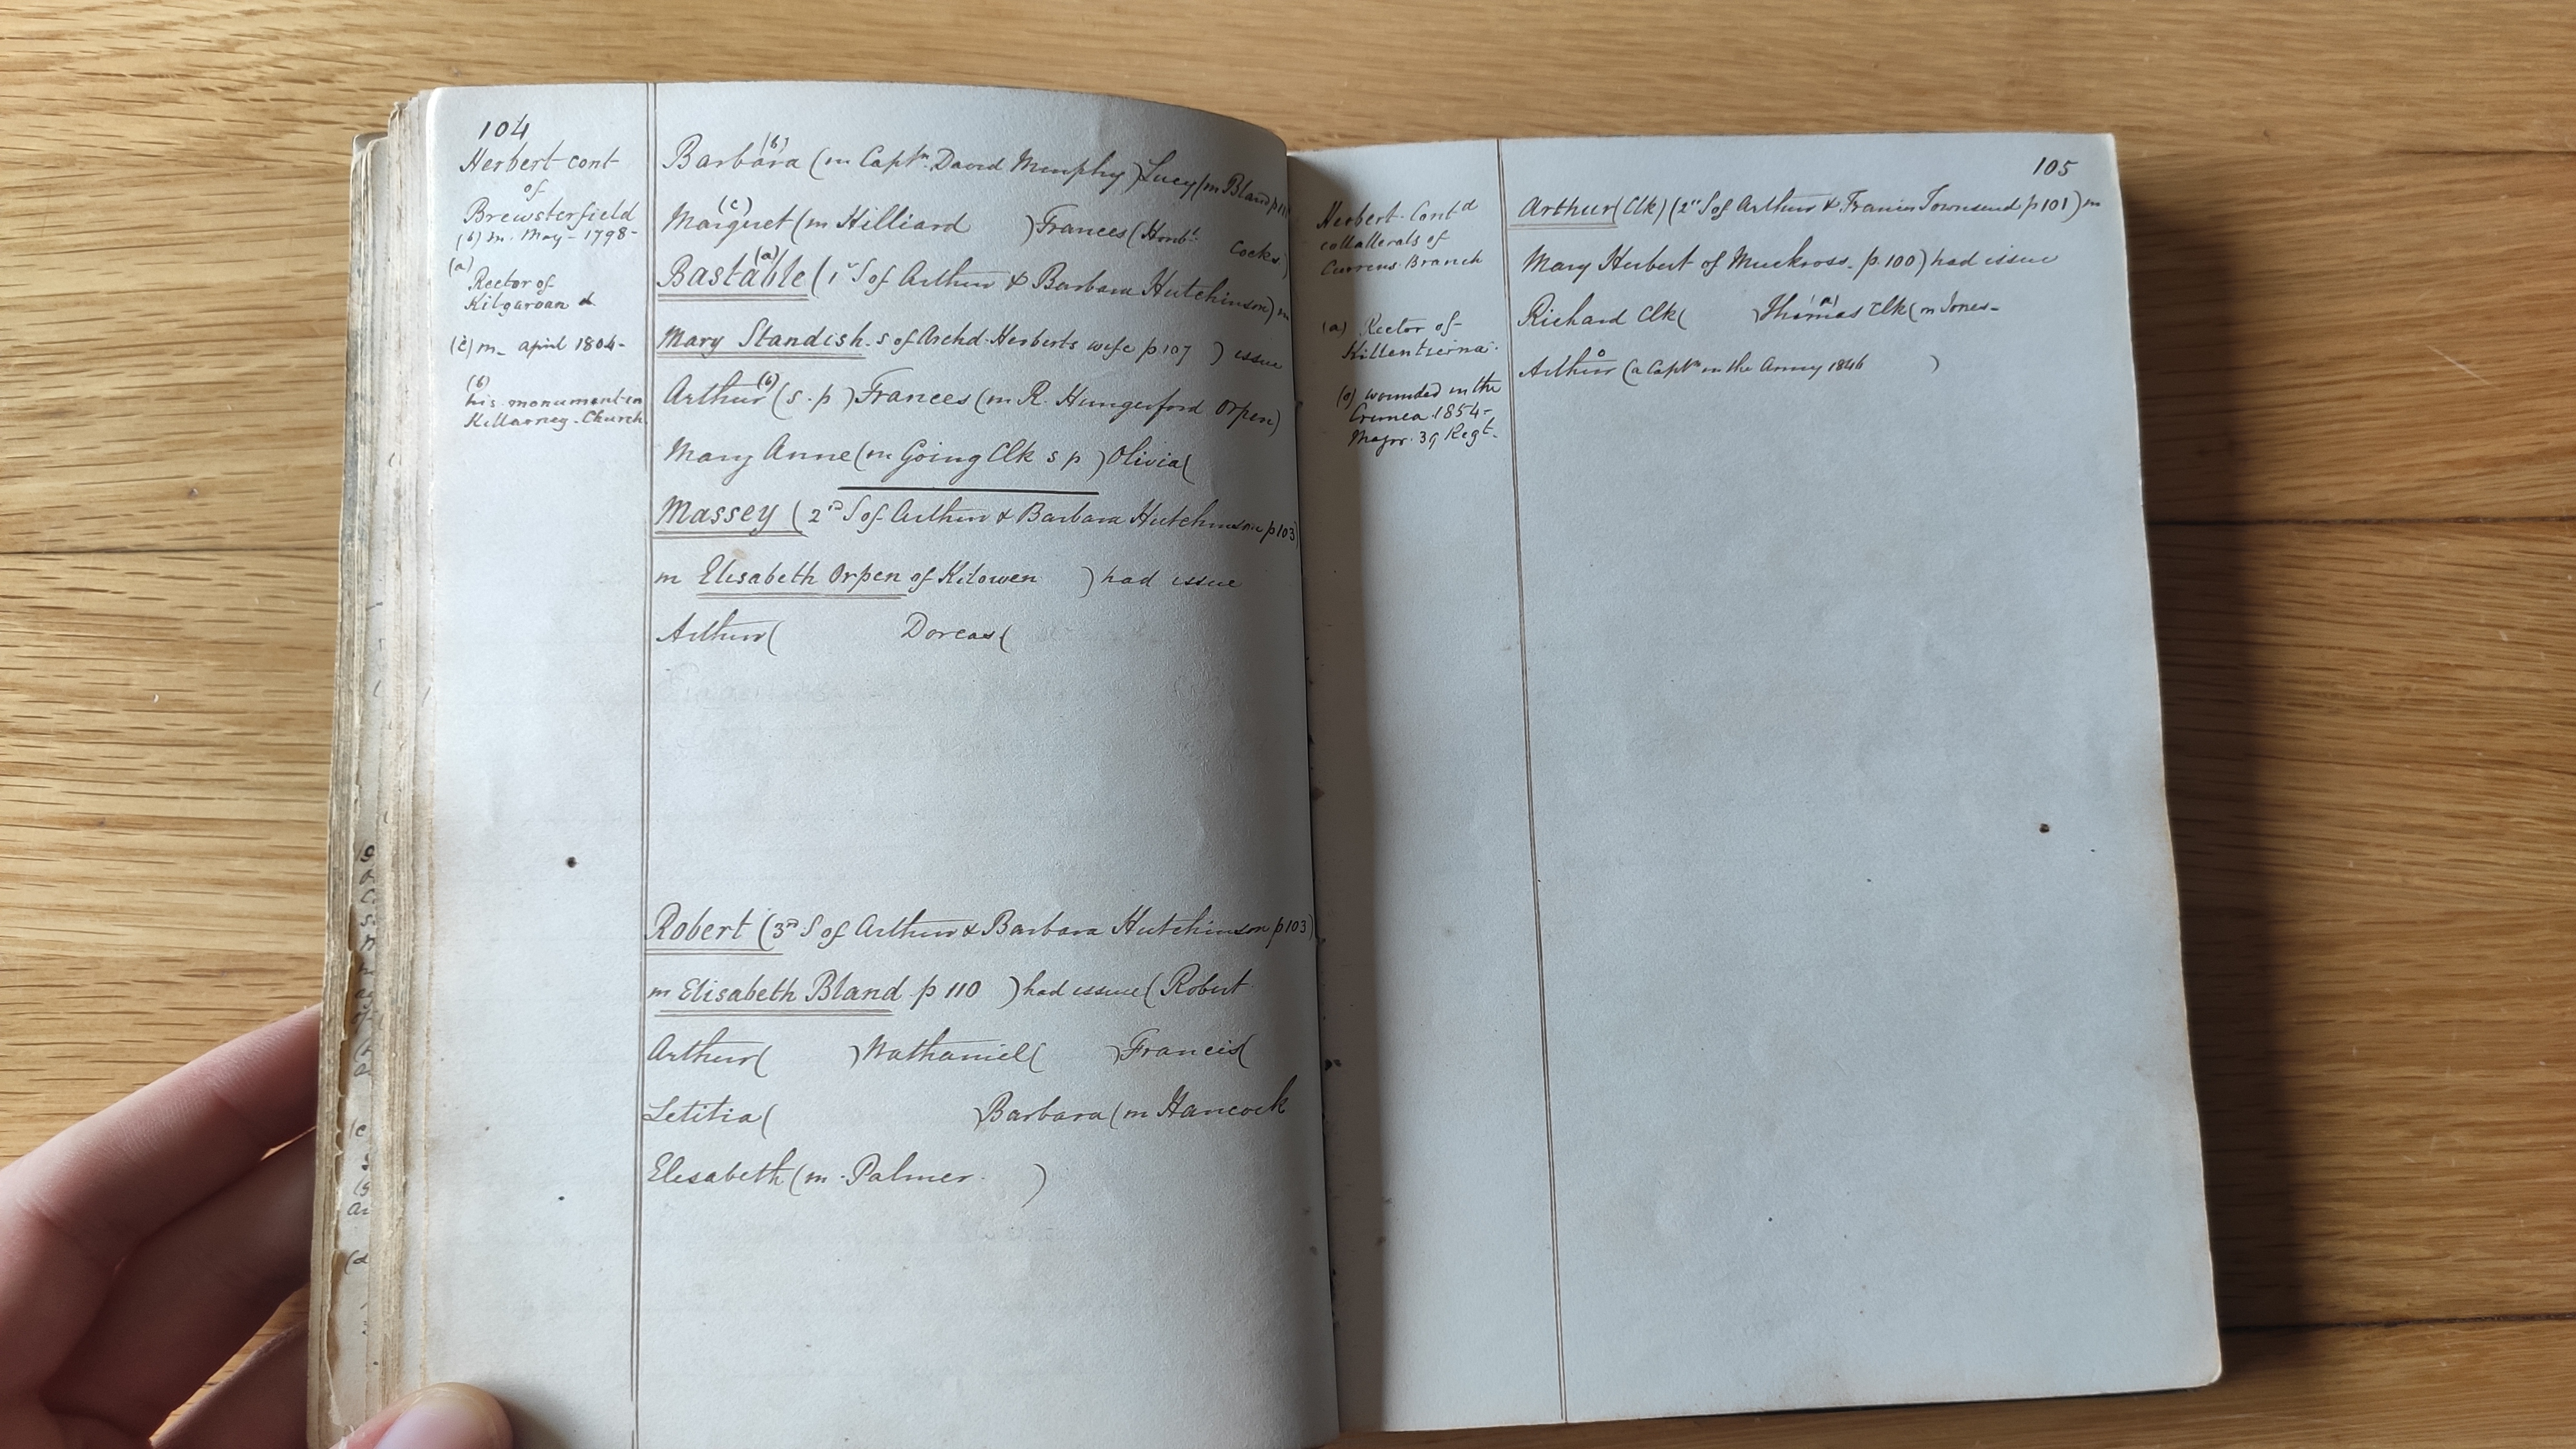 104
Herbert cont
of
Brewsterfield
(b) m. May - 1798-
(a)
Rector of
Kilgarvan &
(c) m- april 1804-
(b)
his monument in
Killarney Church
Barbara (b) (m Captn David Murphy) Lucy (m Bland p 111
Margret (c) (m Hilliard ) Frances (Honble Cocks)
Bastable (a) (1st S of Arthur & Barbara Hutchinson) m
Mary Standish - s of Archd Herberts wife p 107 ) issue
Arthur (b) (s. p ) Frances (m R. Hungerford Orpen)
Mary Anne (m Going Clk s p ) Olivia (
Massey ( 2nd S of Arthur & Barbara Hutchinson p 103)
m Elisabeth Orpen of Kilowen ) had issue
Arthur ( Dorcas (
Robert (3rd S of Arthur & Barbara Hutchinson p 103)
m Elisabeth Bland p 110 ) had issue ( Robert
Arthur ( ) Nathaniel ( ) Francis (
Letitia ( ) Barbara (m Hancock
Elisabeth (m - Palmer. )
105
Herbert Contd
collatterals of
Currens Branch
(a) Rector of
Killentierna
(o) wounded in the
Crimea 1854-
Major. 39 Regt.
Arthur (Clk) (2nd S of Arthur & Frances Townsend p 101) m
Mary Herbert of Muckross. p. 100) had issue
Richard Clk ( ) Thomas (a) Clk (m Jones-
Arthur o (a Captn in the Army 1846 )